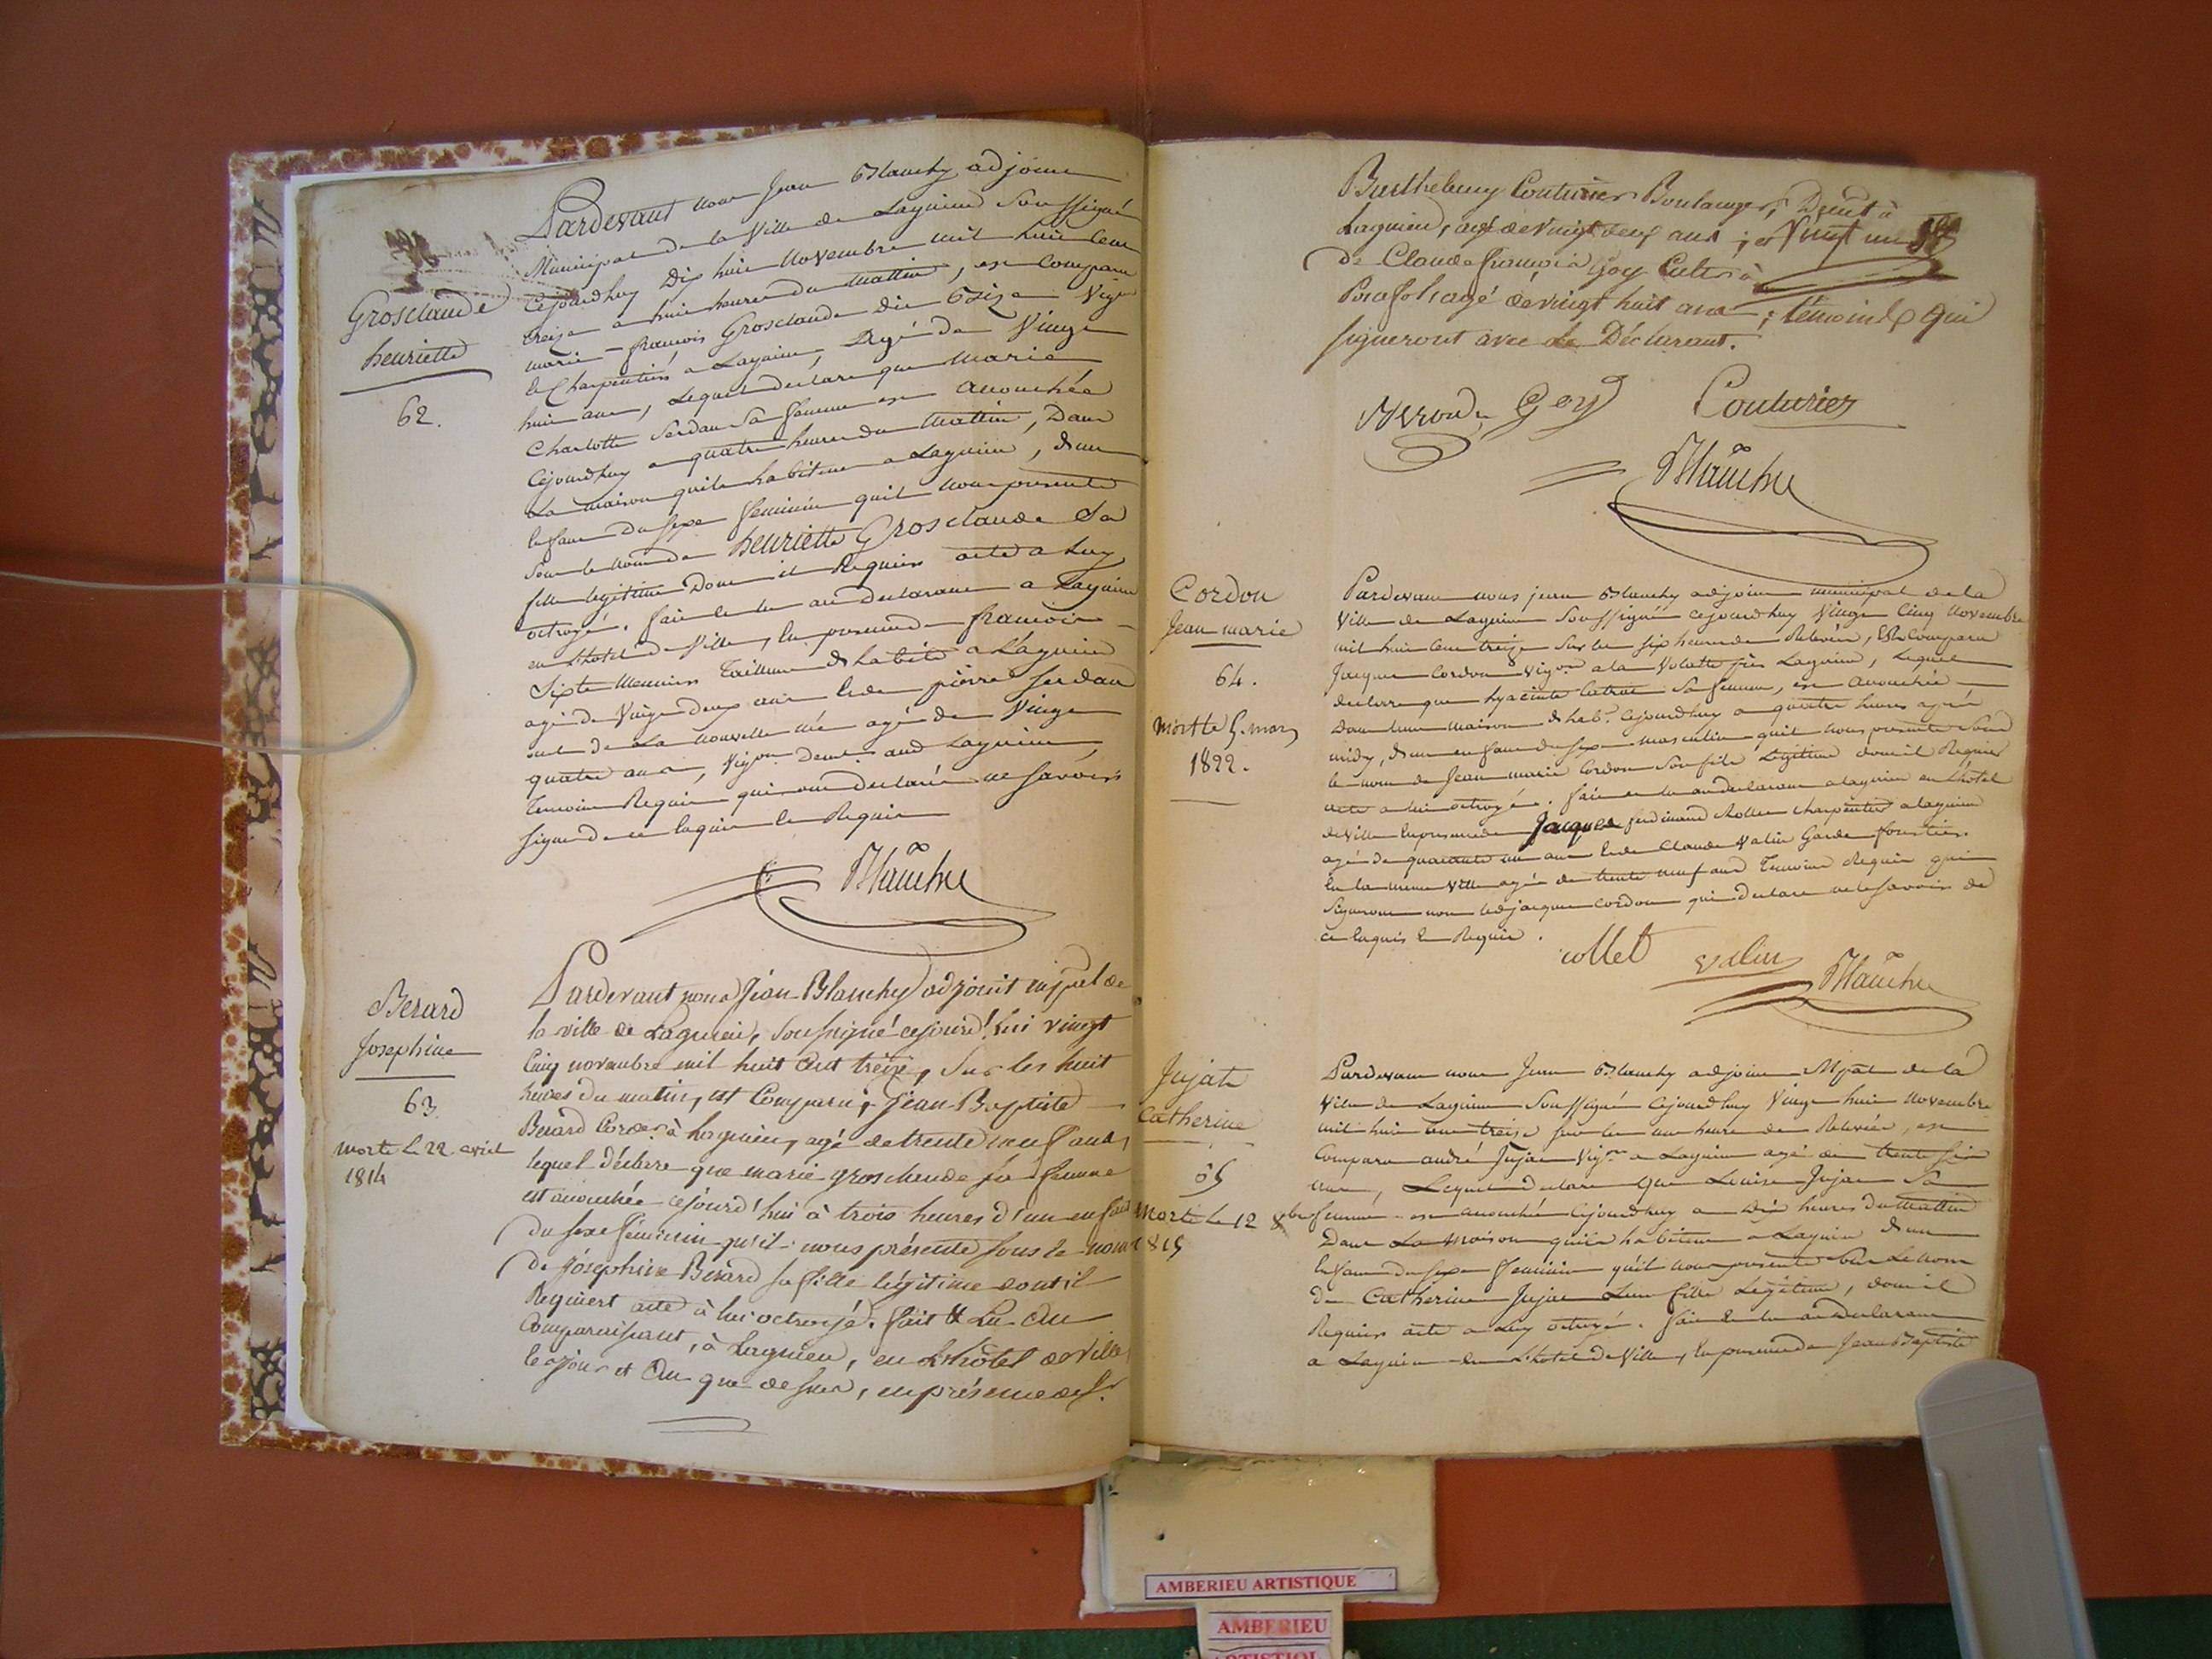 Grosclaude
henriette
62.
Pardevant nous Jean Blanchy adjoint
Municipal de la Ville de Lagnieu Soussigné
Cejourdhuy Dix huit Novembre mil huit Cent
treize a huit heures du mattin, est Comparu
marie-françois Grosclaude dit Vign
le Charpentier a Lagnieu, Agé de Vingt
huit ans, Lequel declare que Marie
Charlotte Serdan Sa femme est accouchée
Cejourdhuy a quatre heures du mattin, Dans
La maison quils habitent a Lagnieu, d'un
Enfant du sexe feminin quil nous presente
Sous le nom de henriette Grosclaude Sa
fille legitime Dont il Requiert acte a Luy
octroyé. fait et lu au declarant a Lagnieu
en L'hotel de Ville, En presence de françois
Sixte Meunier Tailleur d'habits a Lagnieu
agé de Vingt deux ans et de pierre Serdan
de La nouvelle agé de Vingt
quatre ans, Vigon Demt aud Lagnieu,
Temoins Requis qui ont declaré ne Savoir
Signer de ce Enquis et Requis
Blanchy
Berard
Josephine
63.
morte le 22 avril
1814
Pardevant nous Jean Blanchy adjoint mpal de
la ville de Lagnieu, soussigné cejourd'hui vingt
Cinq novembre mil huit Cent treize, Sur les huit
heures du matin, est Comparu; Jean-Baptiste
Berard à Lagnieu, agé de trente neuf ans,
lequel déclare que marie grosclaude sa femme
est accouchée cejourd'hui à trois heures d'un enfant
du sexe féminin qu'il nous présente sous le nom
de Joséphine Berard sa fille légitime dont il
Requiert acte à lui octroyé. fait & Lu Au
Comparaissant, à Lagnieu, en L'hôtel de Ville,
les jour et An que dessus, en présence de Sr
Barthelemy Couturier Boulanger, Dmt à
Lagnieu, agé de vingt neuf ans; et
De Claude françois Goy Cultr à
Porafol agé de vingt huit ans; témoins qui
signeront avec le Déclarant.
Berard Goy Couturier
Blanchy
Cordon
Jean marie
64.
Mort le 5. mars
1822.
Pardevant nous jean Blanchy adjoint municipal de la
Ville de Lagnieu Soussigné cejourdhuy Vingt Cinq Novembre
mil huit Cent treize Sur les six heures de Relevée, Est Comparu
Jacques Cordon Vigon a la Volatte près Lagnieu, Lequel
declare que hyacinte Sa femme, est accouchée
Dans leur maison d'habon Cejourdhuy a quatre heures après
midy, d'un enfant du sexe masculin quil nous presente Sous
le nom de Jean marie Cordon Son fils Légitime dont il Requiert
acte a lui octroyé. fait et lu au declarant a Lagnieu en L'hôtel
de Ville En presence de Jacques ferdinand Collet charpentier a Lagnieu
agé de quarante un ans et de Claude Valin Garde forestier
En la même Ville agé de trente neuf ans Temoins Requis qui
Signeront non led jacques cordon qui declare ne le Savoir de
ce Enquis et Requis.
collet valin Blanchy
Jujat
Catherine
65
Morte le 12 8bre
1815
Pardevant nous Jean Blanchy adjoint Mpal de la
Ville de Lagnieu Soussigné Cejourdhuy Vingt huit Novembre
mil huit Cent treize sur les une heure de Relevée, est
Comparu andré Jujat Vigon a Lagnieu agé de trente six
ans, Lequel declare que Louise Jujat Sa
femme est accouchée Cejourdhuy a Dix heures du mattin
Dans La Maison quils habitent a Lagnieu d'un
Enfant du sexe feminin qu'il nous presente Sous Le nom
de Catherine Jujat Leur fille Legitime, dont il
Requiert acte a Luy octroyé. fait et lu au declarant
a Lagnieu en L'hotel de Ville, En presence de Jean Baptiste
AMBERIEU ARTISTIQUE
AMBERIEU
ARTISTIQU